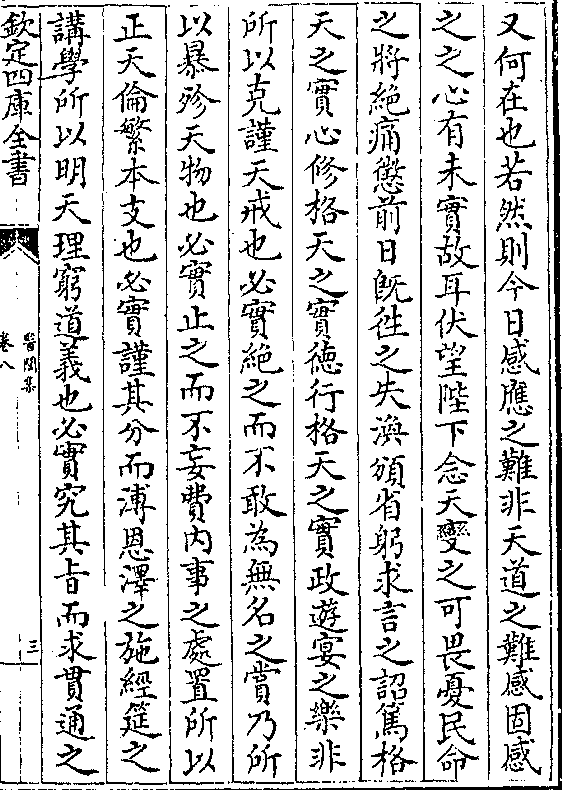 又何在也若然則今日感應之難非天道之難感固感
之之心有未實故耳伏望陛下念天變之可畏憂民命
之將絶痛懲前日既徃之失渙頒省躬求言之詔篤格
天之實心修格天之實德行格天之實政遊宴之樂非
所以克謹天戒也必實絶之而不敢為無名之賞乃所
以暴殄天物也必實止之而不妄費内事之處置所以
正天倫繁本支也必實謹其分而溥恩澤之施經筵之
講學所以明天理窮道義也必實究其㫖而求貫通之
欽定四庫全書
醫閭集
卷八
三